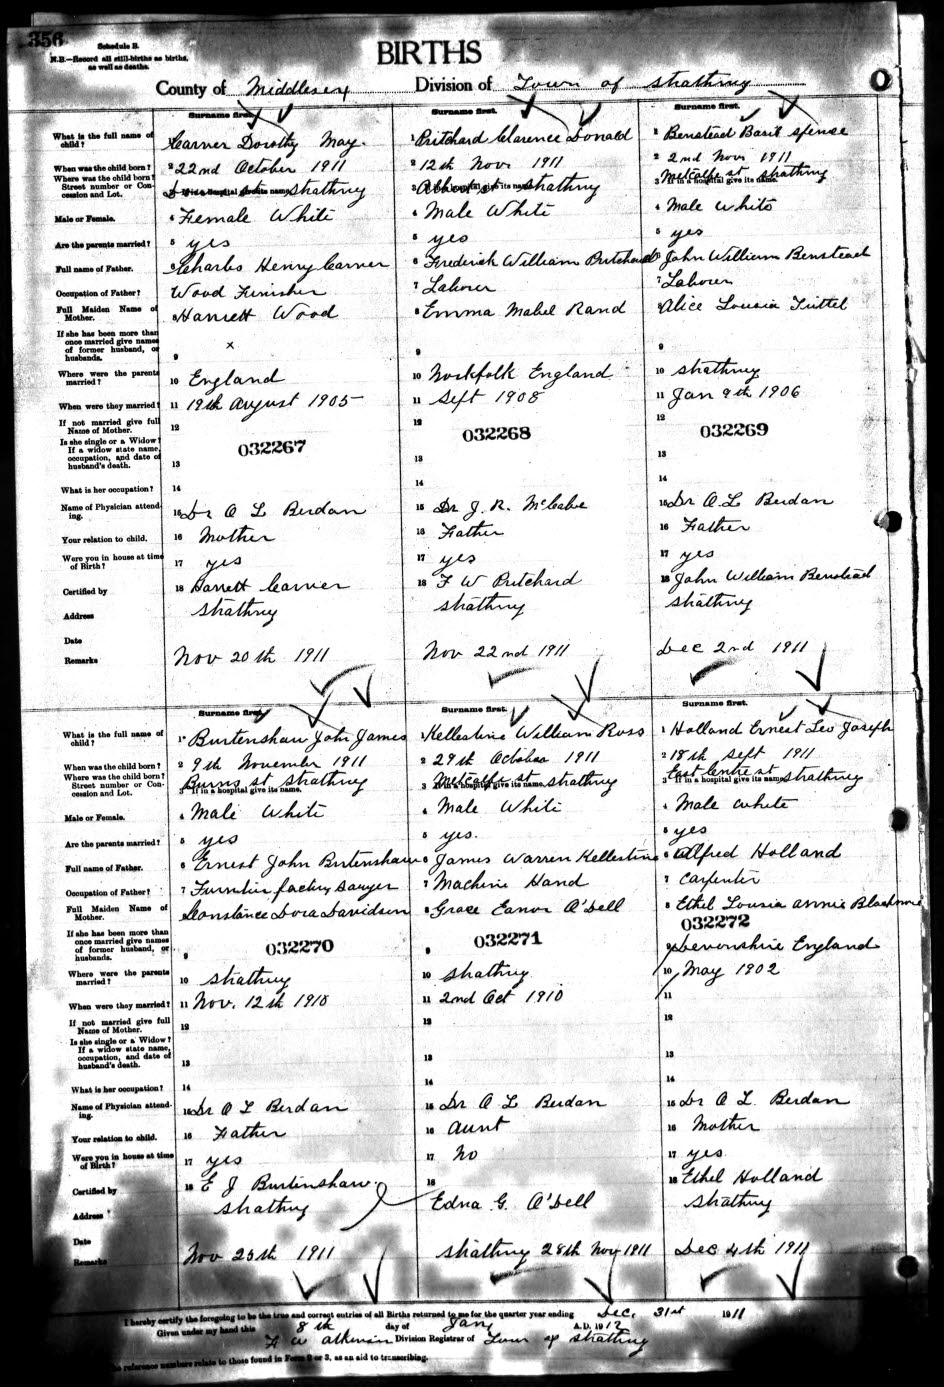 356
Schedule B.
N.B.—Record all still-births as births,
as well as deaths.
BIRTHS
County of Middlesex Division of Town of Strathroy
Surname first. Surname first. Surname first.
What is the full name of child? 1 Carver Dorothy May. 1 Pritchard Clarence Donald 1 Benstead Basil Spense
When was the child born? 2 22nd October 1911 2 12th Nov 1911 2 2nd Nov 1911
Where was the child born? Street number or Concession and Lot. 3 If in a hospital give its name. Strathroy 3 If in a hospital give its name. Albert st Strathroy 3 If in a hospital give its name. Metcalfe st Strathroy
Male or Female. 4 Female White 4 Male White 4 Male White
Are the parents married? 5 yes 5 yes 5 yes
Full name of Father. 6 Charles Henry Carver 6 Frederick William Pritchard 6 John William Benstead
Occupation of Father? 7 Wood Finisher 7 Labourer 7 Labourer
Full Maiden Name of Mother. 8 Harriett Wood 8 Emma Mabel Rand 8 Alice Lousia Tuttel
If she has been more than once married give names of former husband, or husbands. 9 x 9 9
Where were the parents married? 10 England 10 Norkfolk England 10 Strathroy
When were they married? 11 19th August 1905 11 Sept 1908 11 Jan 9th 1906
If not married give full Name of Mother. 12 12 12
032267 032268 032269
Is she single or a Widow? If a widow state name, occupation, and date of husband's death. 13 13 13
What is her occupation? 14 14 14
Name of Physician attending. 15 Dr A L Berdan 15 Dr J. R. McCabe 15 Dr A. L. Berdan
Your relation to child. 16 Mother 16 Father 16 Father
Were you in house at time of Birth? 17 yes 17 yes 17 yes
Certified by 18 Harrett Carver 18 F W Pritchard 18 John William Benstead
Address Strathroy Strathroy Strathroy
Date
Remarks Nov 20th 1911 Nov 22nd 1911 Dec 2nd 1911
Surname first. Surname first. Surname first.
What is the full name of child? 1 Burtenshaw John James 1 Kellestine William Ross 1 Holland Ernest Leo Joseph
When was the child born? 2 9th November 1911 2 29th October 1911 2 18th Sept 1911
Where was the child born? Street number or Concession and Lot. 3 If in a hospital give its name. Burns st Strathroy 3 If in a hospital give its name. Metcalfe st Strathroy 3 If in a hospital give its name. East Centre st Strathroy
Male or Female. 4 Male White 4 Male White 4 Male White
Are the parents married? 5 yes 5 yes. 5 yes
Full name of Father. 6 Ernest John Burtenshaw 6 James Warren Kellestine 6 Alfred Holland
Occupation of Father? 7 Furnitur factory Sawyer 7 Machine Hand 7 Carpenter
Full Maiden Name of Mother. 8 Constance Dora Davidson 8 Grace Eanor O'Dell 8 Ethel Lousia Annie Blackmore
032270 032271 032272
If she has been more than once married give names of former husband, or husbands. 9 9 9 Devonshire England
Where were the parents married? 10 Strathroy 10 Strathroy. 10 May 1902
When were they married? 11 Nov. 12th 1910 11 2nd Oct 1910 11
If not married give full Name of Mother. 12 12 12
Is she single or a Widow? If a widow state name, occupation, and date of husband's death. 13 13 13
What is her occupation? 14 14 14
Name of Physician attending. 15 Dr A L Berdan 15 Dr A L Berdan 15 Dr A L. Berdan
Your relation to child. 16 Father 16 Aunt 16 Mother
Were you in house at time of Birth? 17 yes 17 No 17 yes
Certified by 18 E J Burtenshaw. 18 Edna G. O'Dell 18 Ethel Holland
Address Strathroy Strathroy
Date
Remarks Nov 25th 1911 Strathroy 28th Nov 1911 Dec 4th 1911
I hereby certify the foregoing to be the true and correct entries of all Births returned to me for the quarter year ending Dec. 31st 1911
Given under my hand this 8th day of Jany A.D. 1912
F W Atkinson Division Registrar of Town of Strathroy
The reference numbers relate to those found in Form 2 or 3, as an aid to transcribing.